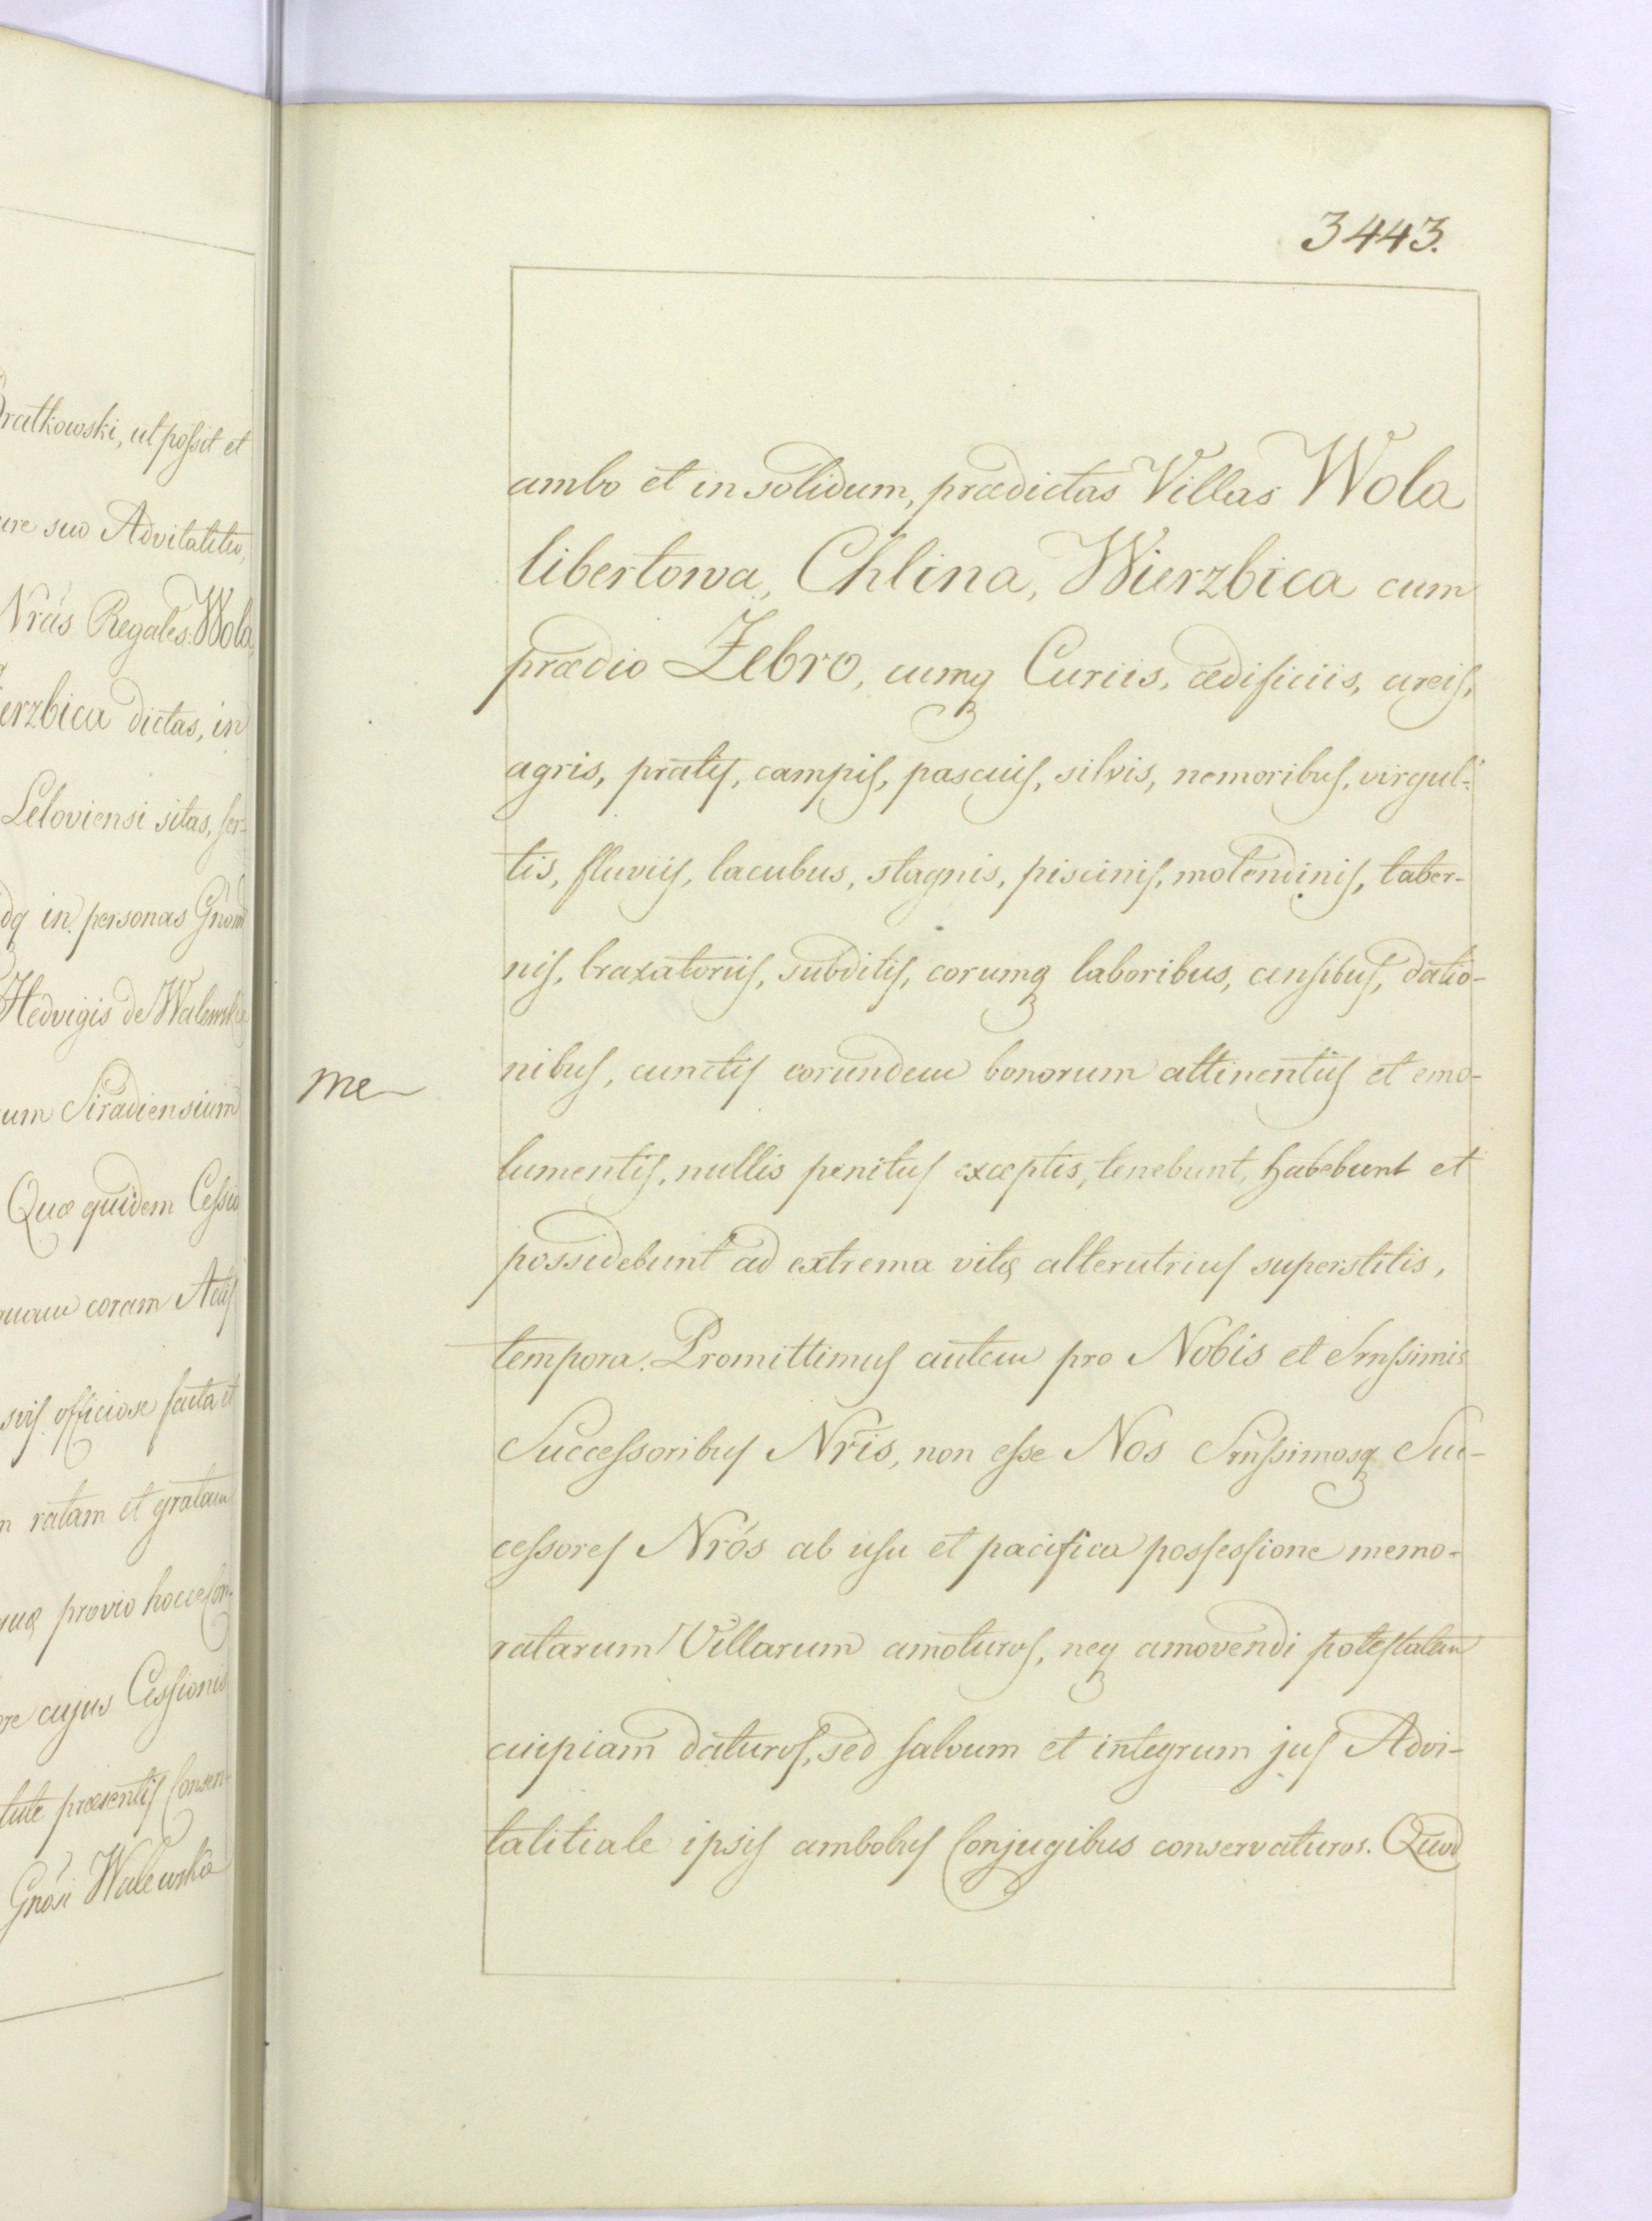 ratkowski, ut poſsit et
ure suo Advitalitio,
Nrás Regales Wola
ierzbica dictas, in
Leloviensi sitas, ser-
dq in personas Gnorum
Hedvigis de Walewskie
um Siradiensium
Quæ quidem Ceſsio
quam coram Actiſ
sviſ officiose facta et
m ratam et gratam
quæ prævio hocce Con-
re cujus Ceſsionis
tute præsentiſ Consen-
Gnósi Walewskia
3443.
ambo et in solidum, prædictas Villas Wola
libertowa, Chlina, Wierzbica cum
prædio Żebro, cumq Curiis, ædificiis, areiſ,
agris, pratiſ, campiſ, pascuiſ, silvis, nemoribuſ, virgul-
tis, fluviiſ, lacubus, stagnis, pisciniſ, molendiniſ, taber-
niſ, braxatoriiſ, subditiſ, eorumq laboribus, censibuſ, datio-
nibuſ, cunctiſ eorundem bonorum attinentiiſ et emo-
me
lumentiſ, nullis penituſ exceptis, tenebunt, habebunt et
possidebunt ad extrema vitæ alterutriuſ superstitis,
tempora. Promittimuſ autem pro Nobis et Srnſsimis
Succeſsoribuſ Nrĩs, non eſse Nos Srnſsimosq Suc-
ceſsoreſ Nrós ab uſu et pacifica poſseſsione memo-
ratarum Villarum amoturoſ, neq amovendi poteſtatem
cuipiam daturoſ, sed ſalvum et integrum juſ Advi-
talitiale ipsiſ ambobuſ Conjugibus conservaturos. Quod